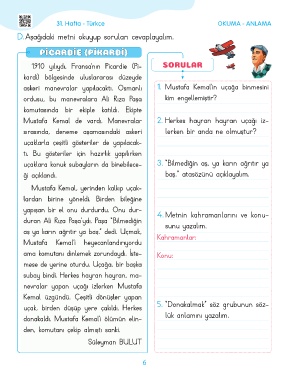 31. Hafta - Türkçe
OKUMA - ANLAMA
D. Aşağıdaki metni okuyup soruları cevaplayalım.
PİCARDİE (PİKARDİ)
1910 yılıydı. Fransa'nın Picardie (Pi-
kardi) bölgesinde uluslararası düzeyde
askeri manevralar yapılacaktı. Osmanlı
ordusu, bu manevralara Ali Rıza Paşa
komutasında bir ekiple katıldı. Ekipte
Mustafa Kemal de vardı. Manevralar
sırasında, deneme aşamasındaki askeri
uçaklarla çeşitli gösteriler de yapılacak-
tı. Bu gösteriler için hazırlık yapılırken
uçaklara konuk subayların da binebilece-
ği açıklandı.
Mustafa Kemal, yerinden kalkıp uçak-
lardan birine yöneldi. Birden bileğine
yapışan bir el onu durdurdu. Onu dur-
duran Ali Rıza Paşa'ydı. Paşa "Bilmediğin
aş ya karın ağrıtır ya baş." dedi. Uçmak,
Mustafa Kemal'i heyecanlandırıyordu
ama komutanı dinlemek zorundaydı. İste-
mese de yerine oturdu. Uçağa, bir başka
subay bindi. Herkes hayran hayran, ma-
nevralar yapan uçağı izlerken Mustafa
Kemal üzgündü. Çeşitli dönüşler yapan
uçak, birden düşüp yere çakıldı. Herkes
donakaldı. Mustafa Kemal'i ölümün elin-
den, komutanı çekip almıştı sanki.
Süleyman BULUT
SORULAR
1. Mustafa Kemal'in uçağa binmesini
kim engellemiştir?
2. Herkes hayran hayran uçağı iz-
lerken bir anda ne olmuştur?
3. "Bilmediğin aş, ya karın ağrıtır ya
baş." atasözünü açıklayalım.
4. Metnin kahramanlarını ve konu-
sunu yazalım.
Kahramanlar:
Konu:
5. "Donakalmak" söz grubunun söz-
lük anlamını yazalım.
6